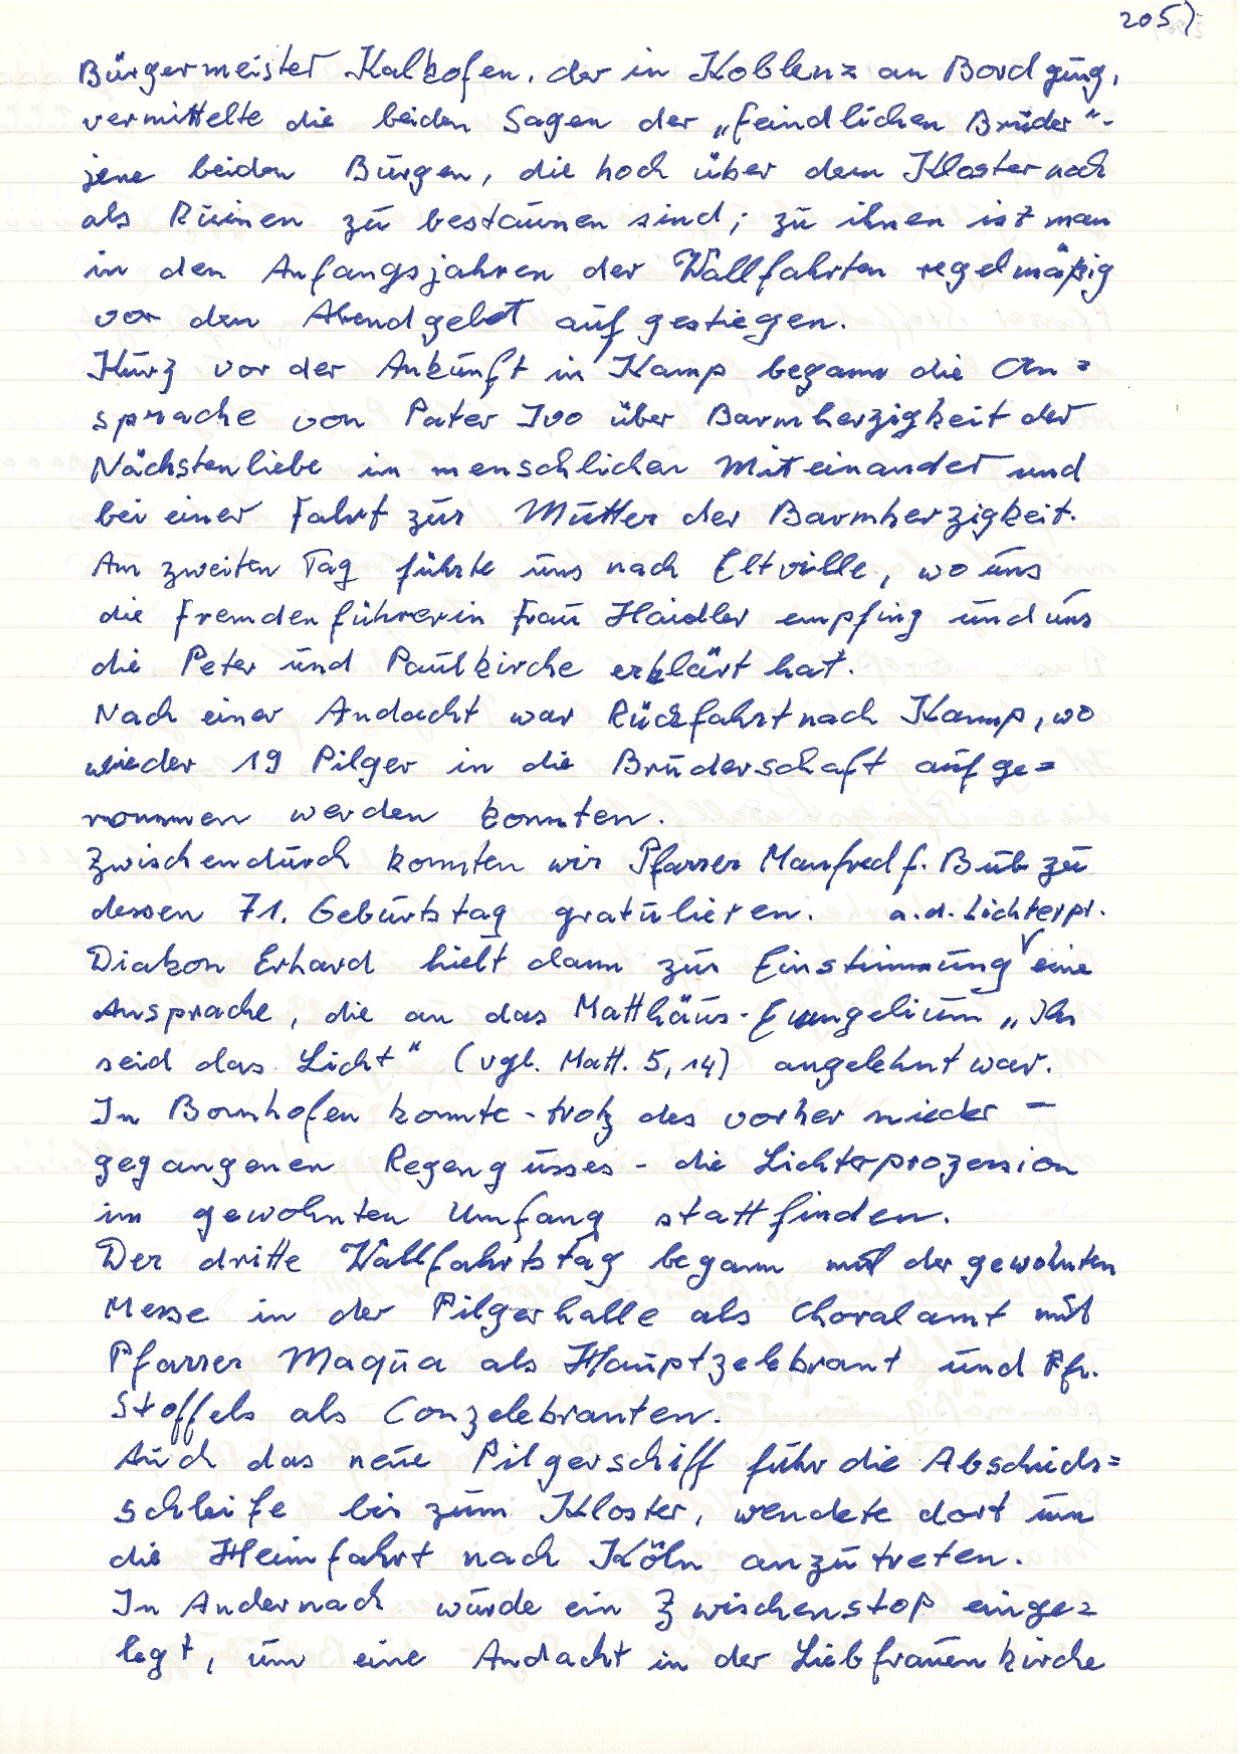 205)
Bürgermeister Kalkofen, der in Koblenz an Bord ging,
vermittelte die beiden Sagen der „feindlichen Brüder“-
jene beiden Burgen, die hoch über dem Kloster noch
als Ruinen zu bestaunen sind; zu ihnen ist man
in den Anfangsjahren der Wallfahrten regelmäßig
vor dem Abendgebet aufgestiegen.
Kurz vor der Ankunft in Kamp begann die An=
sprache von Pater Ivo über Barmherzigkeit der
Nächstenliebe im menschlichen Miteinander und
bei einer Fahrt zur Mutter der Barmherzigkeit.
Am zweiten Tag führte uns nach Eltville, wo uns
die Fremdenführerin Frau Haidler empfing und uns
die Peter und Paulkirche erklärt hat.
Nach einer Andacht war Rückfahrt nach Kamp, wo
wieder 19 Pilger in die Bruderschaft aufge=
nommen werden konnten.
Zwischendurch konnten wir Pfarrer Manfred f. Bub zu
dessen 71. Geburtstag gratulieren. a.d. Lichterpr.
Diakon Erhard hielt dann zur Einstimmung eine
Ansprache, die an das Matthäus-Evangelium „Ihr
seid das Licht“ (vgl. Matt. 5,14) angelehnt war.
In Bornhofen konnte - trotz des vorher nieder-
gegangenen Regengusses - die Lichterprozession
im gewohnten Umfang stattfinden.
Der dritte Wallfahrtstag begann mit der gewohnten
Messe in der Pilgerhalle als Choralamt mit
Pfarrer Maqua als Hauptzelebrant und Pfr.
Stoffels als Conzelebranten.
Auch das neue Pilgerschiff fuhr die Abschieds=
schleife bis zum Kloster, wendete dort um
die Heimfahrt nach Köln anzutreten.
In Andernach wurde ein Zwischenstop einge=
legt, um eine Andacht in der Liebfrauenkirche